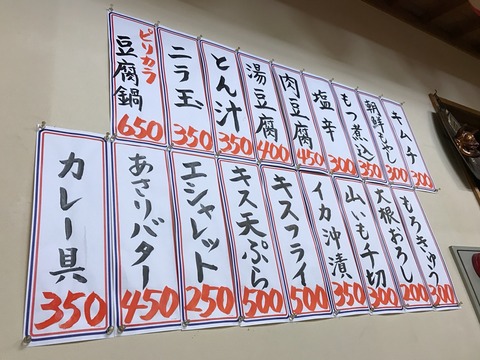 キムチ
300
朝鮮もやし
300
もつ煮込
350
塩辛
300
肉豆腐
450
湯豆腐
400
とん汁
350
ニラ玉
350
ピリカラ
豆腐鍋
650
もろきゅう
300
大根おろし
200
山いも千切
300
イカ沖漬
350
キスフライ
500
キス天ぷら
500
エシャレット
250
あさりバター
450
カレー具
350